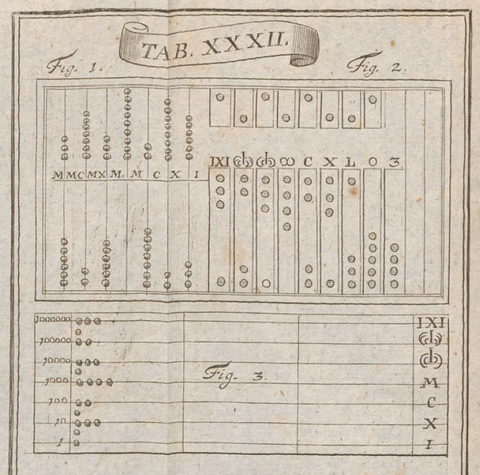 TAB. XXXII.
Fig. 1.
Fig. 2.
IXI ↈ ↂ ∞ C X L O 3
M MC MX M. M C X I
1000000 IXI
100000 ↈ
10000 ↂ
Fig. 3.
1000 M
100 C
10 X
1 I